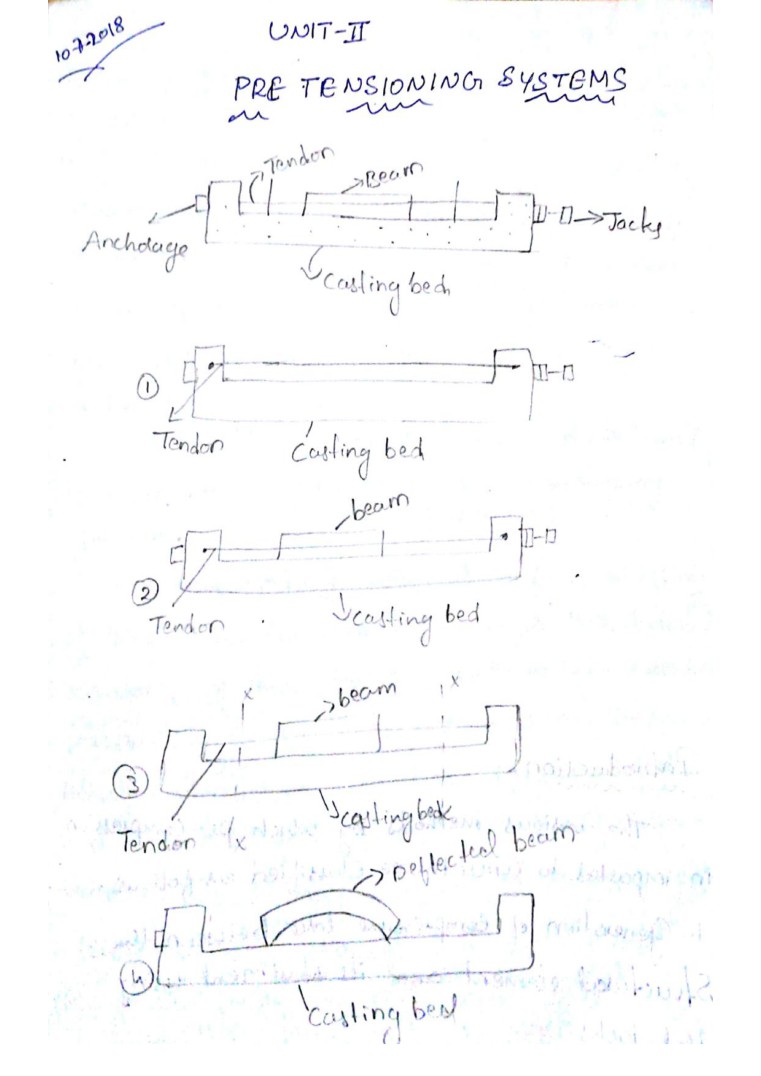 10-7-2018
UNIT-II
PRE TENSIONING SYSTEMS
Tendon
Beam
Jacks
Anchorage
Casting bed
1
Tendon
Casting bed
beam
2
Tendon
casting bed
x
beam
x
3
casting bed
Tendon
x
Deflected beam
4
Casting bed